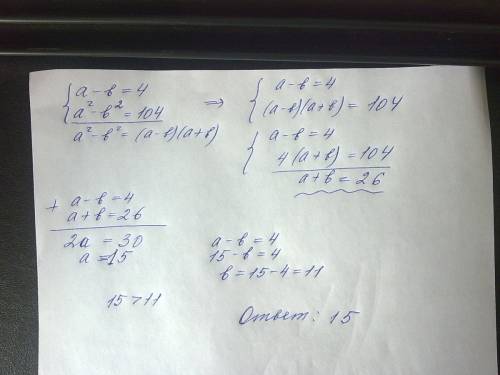 { a - в = 4
a² - в² = 104
a² - в² = (a-в)(a+в)
=> { a - в = 4
(a-в)(a+в) = 104
{ a - в = 4
4(a+в) = 104
a + в = 26
+ a - в = 4
a + в = 26
2a = 30
a = 15
a - в = 4
15 - в = 4
в = 15 - 4 = 11
15 > 11
Ответ: 15